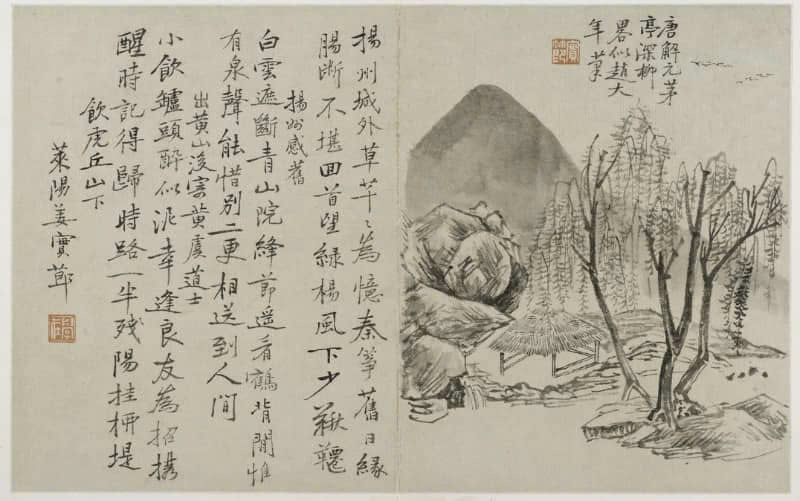 唐解元茅
亭深柳
略似趙大
年筆
揚州城外草芊芊為憶秦箏舊日緣
腸斷不堪回首望綠楊風下少鞦韆
揚州感舊
白雲遮斷青山院絳節遥看鶴背閒惟
有泉聲能惜別二更相送到人間
出黄山後寄黄虞道士
小飲鑪頭醉似泥幸逢良友為招攜
醒時記得歸時路一半殘陽挂柳堤
飲虎丘山下
萊陽姜實節